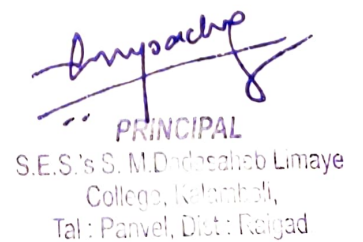 PRINCIPAL
S.E.S.'s S. M.Dadasaheb Limaye
College, Kalamboli,
Tal : Panvel, Dist : Raigad